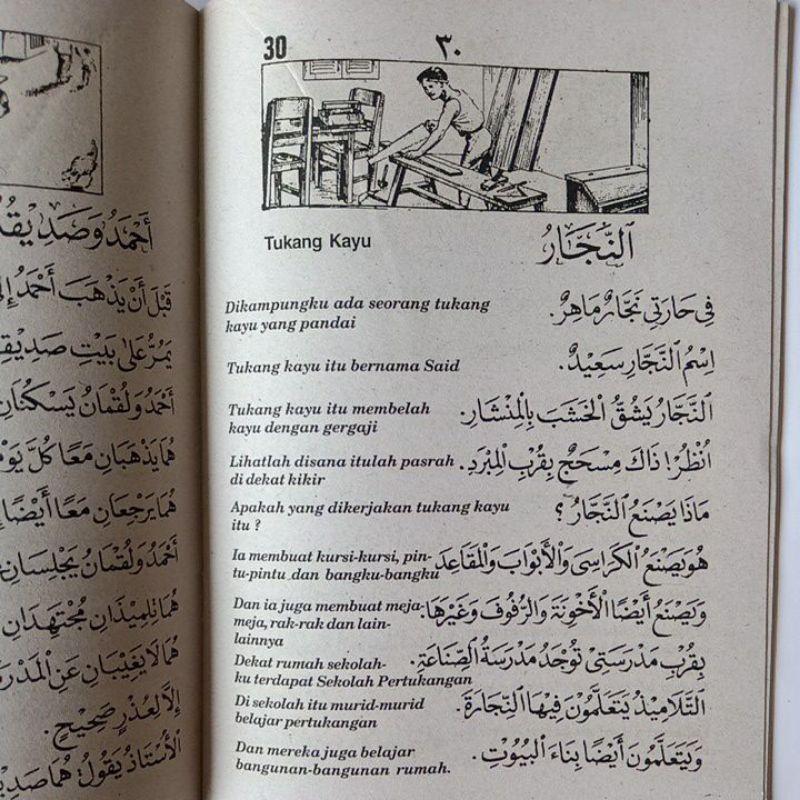 أَحْمَدُ وَصَدِيْقُ
قَبْلَ أَنْ يَذْهَبَ أَحْمَدُ إِلَى
يَمُرُّ عَلَى بَيْتِ صَدِيْقِ
أَحْمَدُ وَلُقْمَانُ يَسْكُنَانِ
هُمَا يَذْهَبَانِ مَعًا كُلَّ يَوْمٍ
هُمَا يَرْجِعَانِ مَعًا أَيْضًا
أَحْمَدُ وَلُقْمَانُ يَجْلِسَانِ
هُمَا تِلْمِيْذَانِ مُجْتَهِدَانِ
هُمَا لَا يَغِيْبَانِ عَنِ الْمَدْرَ
إِلَّا لِعُذْرٍ صَحِيْحٍ.
الْأُسْتَاذُ يَقُوْلُ هُمَا صَدِيْ
30 ٣٠
Tukang Kayu
اَلنَّجَّارُ
Dikampungku ada seorang tukang
kayu yang pandai
فِي حَارَتِي نَجَّارٌ مَاهِرٌ.
Tukang kayu itu bernama Said
اِسْمُ النَّجَّارِ سَعِيْدٌ.
Tukang kayu itu membelah
kayu dengan gergaji
اَلنَّجَّارُ يَشُقُّ الْخَشَبَ بِالْمِنْشَارِ.
Lihatlah disana itulah pasrah
di dekat kikir
اُنْظُرْ! ذَاكَ مِسْحَجٌ بِقُرْبِ الْمِبْرَدِ.
Apakah yang dikerjakan tukang kayu
itu ?
مَاذَا يَصْنَعُ النَّجَّارُ ؟
Ia membuat kursi-kursi, pin-
tu-pintu dan bangku-bangku
هُوَ يَصْنَعُ الْكَرَاسِيَ وَالْأَبْوَابَ وَالْمَقَاعِدَ
Dan ia juga membuat meja-
meja, rak-rak dan lain-
lainnya
وَيَصْنَعُ أَيْضًا الْأَخْوِنَةَ وَالرُّفُوْفَ وَغَيْرَهَا.
Dekat rumah sekolah-
ku terdapat Sekolah Pertukangan
بِقُرْبِ مَدْرَسَتِيْ تُوْجَدُ مَدْرَسَةُ الصِّنَاعَةِ.
Di sekolah itu murid-murid
belajar pertukangan
اَلتَّلَامِيْذُ يَتَعَلَّمُوْنَ فِيْهَا النِّجَارَةَ.
Dan mereka juga belajar
bangunan-bangunan rumah.
وَيَتَعَلَّمُوْنَ أَيْضًا بِنَاءَ الْبُيُوْتِ.